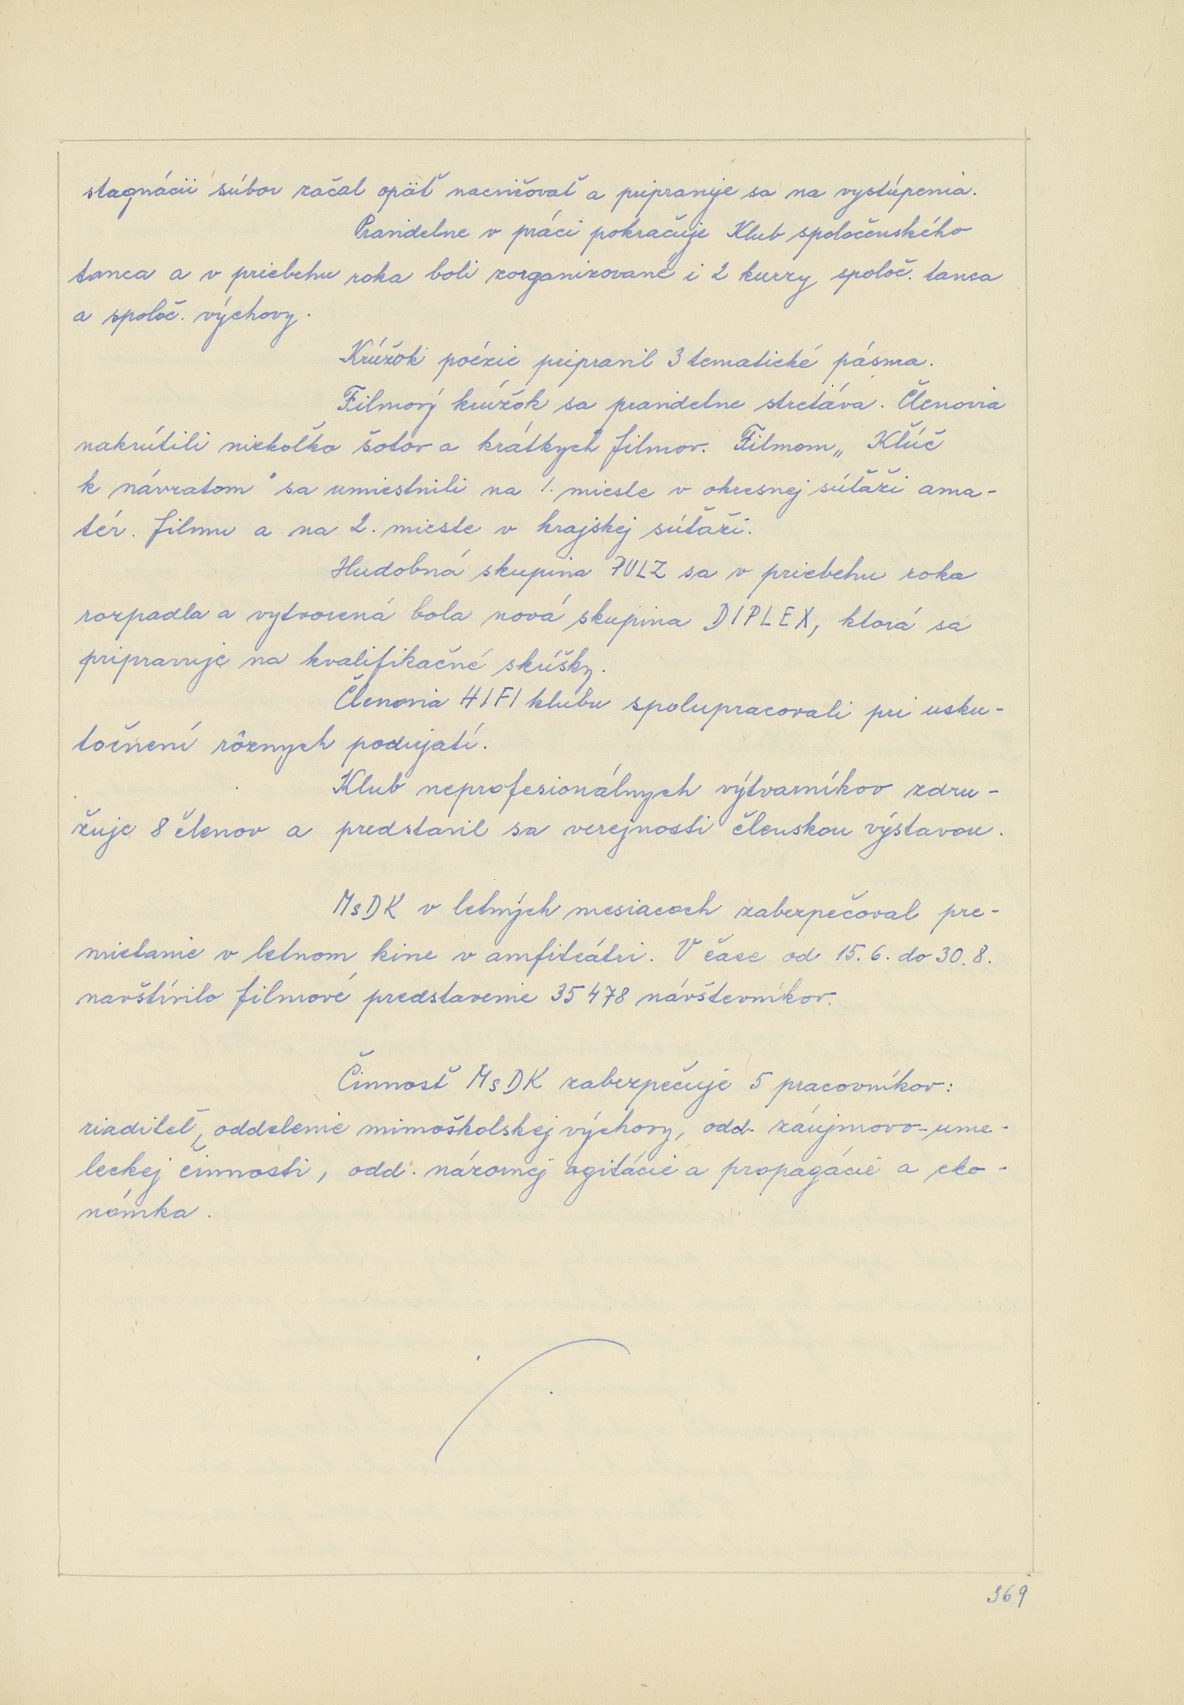 stagnácii súbor začal opäť nacvičovať a pripravuje sa na vystúpenia.
Pravidelne v práci pokračuje Klub spoločenského
tanca a v priebehu roka boli zorganizované i 2 kurzy spoloč. tanca
a spoloč. výchovy.
Krúžok poézie pripravil 3 tematické pásma.
Filmový krúžok sa pravidelne stretáva. Členovia
nakrútili niekoľko šotov a krátkych filmov. Filmom „Kľúč
k návratom" sa umiestnili na 1. mieste v okresnej súťaži ama-
tér. filmu a na 2. mieste v krajskej súťaži.
Hudobná skupina PULZ sa v priebehu roka
rozpadla a vytvorená bola nová skupina DIPLEX, ktorá sa
pripravuje na kvalifikačné skúšky.
Členovia HIFI klubu spolupracovali pri usku-
točnení rôznych podujatí.
Klub neprofesionálnych výtvarníkov zdru-
žuje 8 členov a predstavil sa verejnosti členskou výstavou.
MsDK v letných mesiacoch zabezpečoval pre-
mietanie v letnom kine v amfiteátri. V čase od 15. 6. do 30. 8.
navštívilo filmové predstavenie 35 478 návštevníkov.
Činnosť MsDK zabezpečuje 5 pracovníkov:
riaditeľ, oddelenie mimoškolskej výchovy, odd. záujmovo-ume-
leckej činnosti, odd. názornej agitácie a propagácie a eko-
nómka.
369